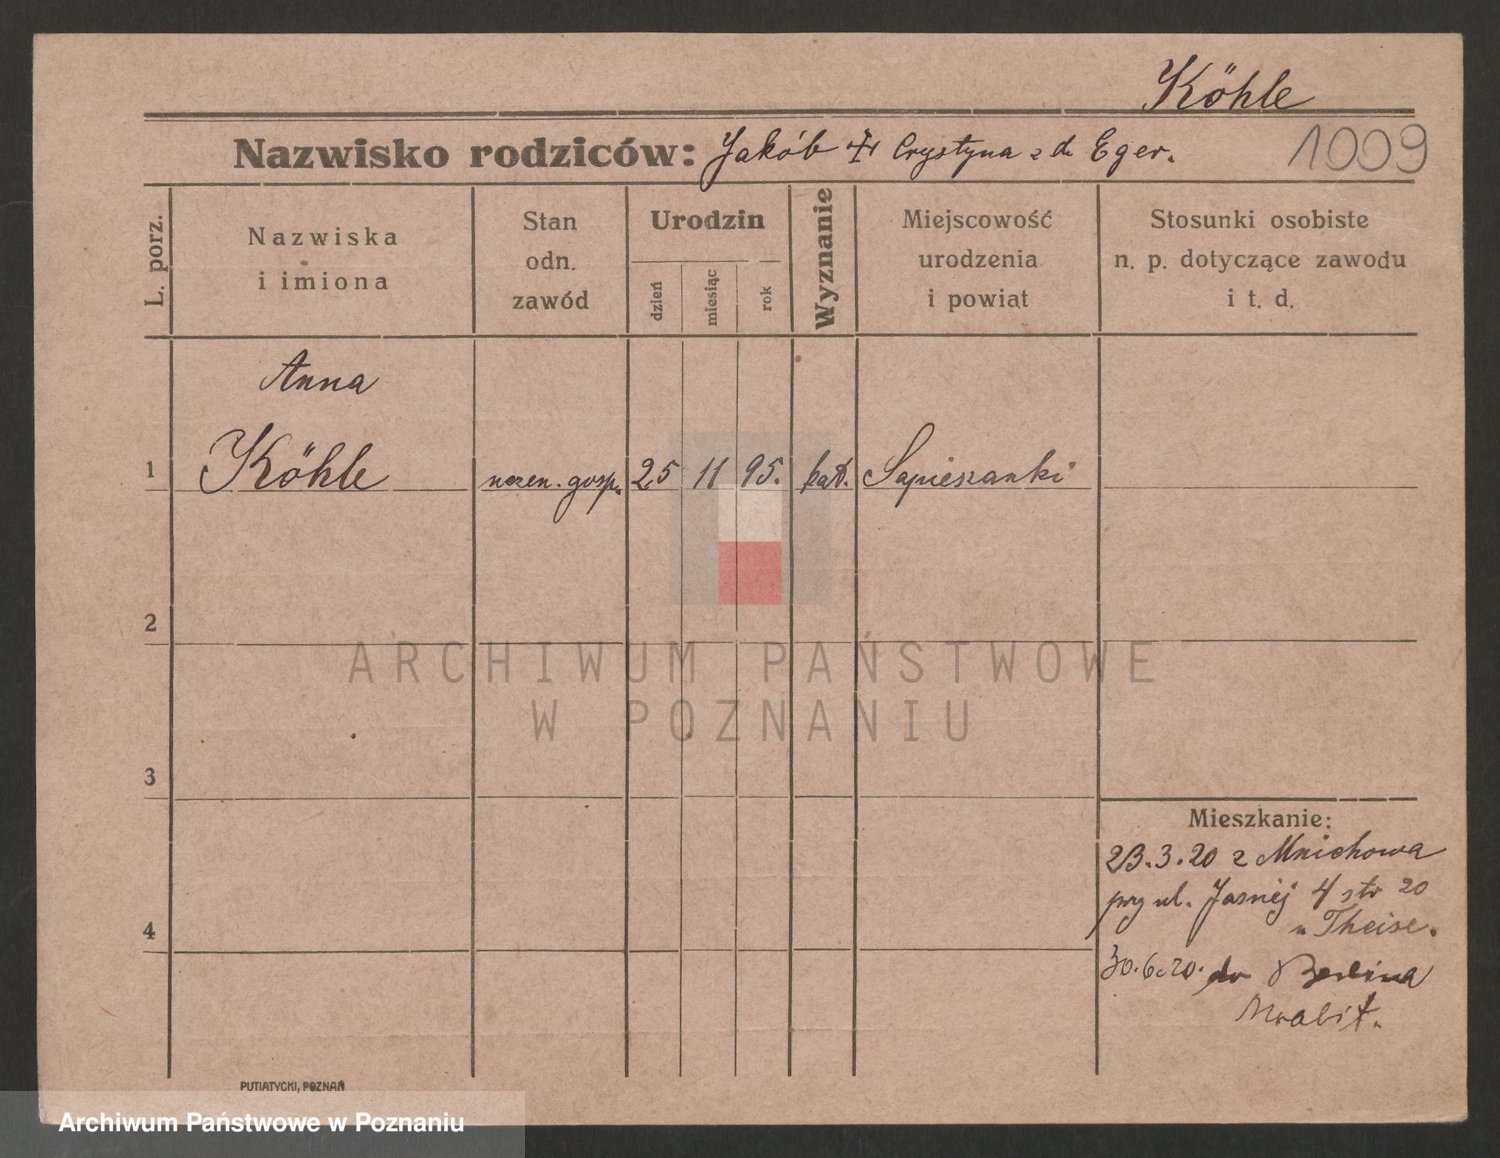 Köhle
Nazwisko rodziców: Jakób i Crystyna z d. Eger.
1009
L. porz.
Nazwiska
i imiona
Stan
odn.
zawód
Urodzin
dzień
miesiąc
rok
Wyznanie
Miejscowość
urodzenia
i powiat
Stosunki osobiste
n. p. dotyczące zawodu
i t. d.
Anna
1 Köhle uczen. gosp. 25 11 95. kat. Sapieszanki
2
ARCHIWUM PAŃSTWOWE
W POZNANIU
3
Mieszkanie:
23.3.20 z Mnichowa
przy ul. Jasnéj 4 str 20
u Theise.
4
30.6.20. do Berlina
Moabit.
PUTIATYCKI, POZNAŃ
Archiwum Państwowe w Poznaniu